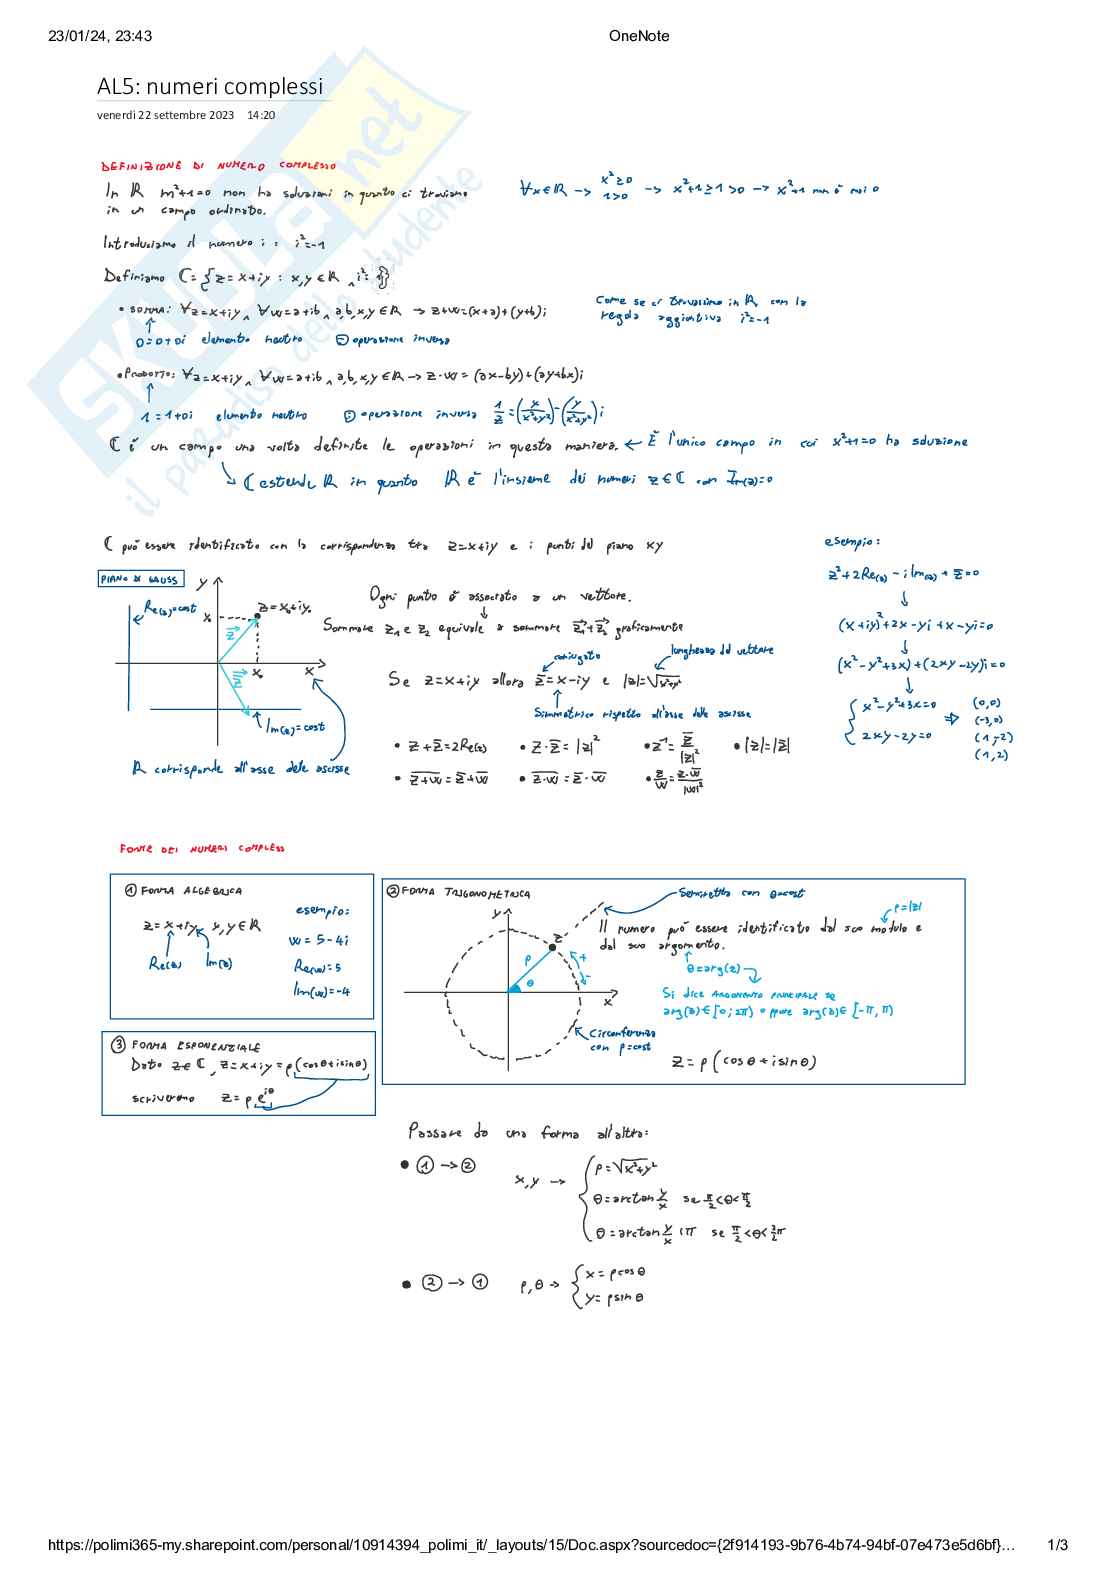 23/01/24, 23:43
OneNote
AL5: numeri complessi
venerdì 22 settembre 2023 14:20
DEFINIZIONE DI NUMERO COMPLESSO
In ℝ m²+1=0 non ha soluzioni in quanto ci troviamo
in un campo ordinato.
∀x∈ℝ → x²≥0 1>0 → x²+1≥1>0 → x²+1 non è mai 0
Introduciamo il numero i : i²=-1
Definiamo ℂ={z=x+iy : x,y∈ℝ ∧ i²=-1}
• SOMMA: ∀z=x+iy ∧ ∀w=a+ib ∧ a,b,x,y∈ℝ → z+w=(x+a)+(y+b)i
0=0+0i elemento neutro ⊖ operazione inversa
Come se ci trovassimo in ℝ, con la
regola aggiuntiva i²=-1
• PRODOTTO: ∀z=x+iy ∧ ∀w=a+ib ∧ a,b,x,y∈ℝ → z·w=(ax-by)+(ay+bx)i
1=1+0i elemento neutro operazione inversa 1/z=(x/(x²+y²))-(y/(x²+y²))i
ℂ è un campo una volta definite le operazioni in questa maniera. ← È l'unico campo in cui x²+1=0 ha soluzione
↳ ℂ estende ℝ in quanto ℝ è l'insieme dei numeri z∈ℂ con Im(z)=0
ℂ può essere identificato con la corrispondenza tra z=x+iy e i punti del piano xy
PIANO DI GAUSS
y
Re(z)=cost
z=x₀+iy₀
x₀
z
z̄
x₀
x
Im(z)=cost
ℝ corrisponde all'asse delle ascisse
Ogni punto è associato a un vettore.
Sommare z₁ e z₂ equivale a sommare z₁+z₂ graficamente
coniugato
lunghezza del vettore
Se z=x+iy allora z̄=x-iy e |z|=√(x²+y²)
Simmetrico rispetto all'asse delle ascisse
• z+z̄=2Re(z) • z·z̄=|z|² • z⁻¹=z̄/|z|² • |z|=|z̄|
• \overline{z+w}=z̄+w̄ • \overline{z·w}=z̄·w̄ • z/w=z·w̄/|w|²
esempio:
z²+2Re(z)-iIm(z)+z̄=0
(x+iy)²+2x-yi+x-yi=0
(x²-y²+3x)+(2xy-2y)i=0
{x²-y²+3x=0
2xy-2y=0 ⇒
(0,0)
(-3,0)
(1,-2)
(1,2)
FORME DEI NUMERI COMPLESSI
① FORMA ALGEBRICA
z=x+iy, x,y∈ℝ
Re(z) Im(z)
esempio:
w=5-4i
Re(w)=5
Im(w)=-4
② FORMA TRIGONOMETRICA
Semiretta con θ=cost
y
z
ρ
θ
+
-
x
Circonferenza
con ρ=cost
ρ=|z|
Il numero può essere identificato dal suo modulo e
dal suo argomento.
θ=arg(z)
Si dice ARGOMENTO PRINCIPALE se
arg(z)∈[0;2π) oppure arg(z)∈[-π,π)
z=ρ(cosθ+isinθ)
③ FORMA ESPONENZIALE
Dato z∈ℂ, z=x+iy=ρ(cosθ+isinθ)
scriveremo z=ρe^{iθ}
Passare da una forma all'altra:
• ①→② x,y → {ρ=√(x²+y²)
θ=arctan y/x se π/2<θ<π/2
θ=arctan y/x +π se π/2<θ<3/2π
• ②→① ρ,θ → {x=ρcosθ
y=ρsinθ
https://polimi365-my.sharepoint.com/personal/10914394_polimi_it/_layouts/15/Doc.aspx?sourcedoc={2f914193-9b76-4b74-94bf-07e473e5d6bf}…
1/3
SKUOLA.net
il paradiso dello studente